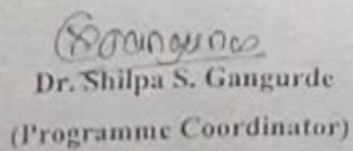 Dr. Shilpa S. Gangurde
(Programme Coordinator)